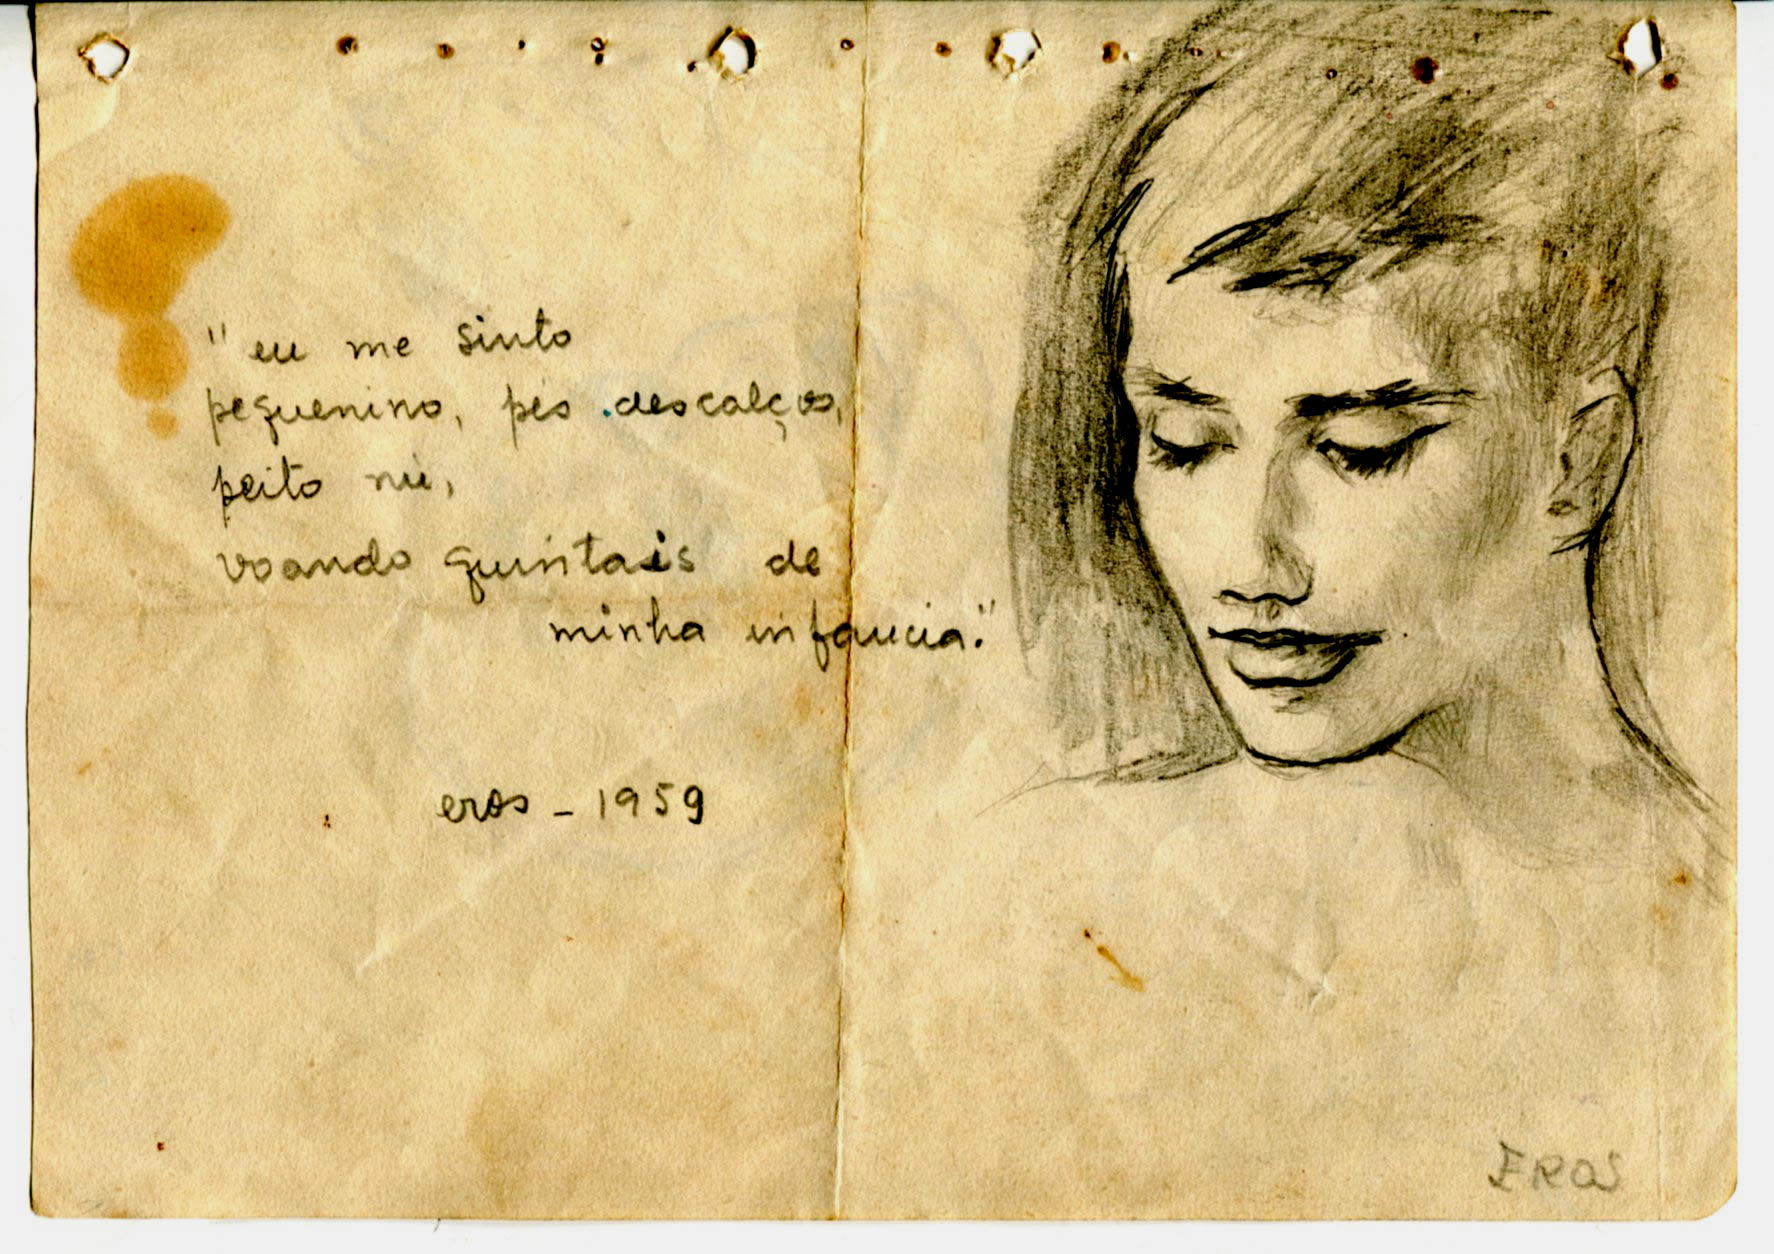 "eu me sinto
pequenino, pés descalços,
peito nú,
voando quintais de
minha infancia."
eros - 1959
EROS